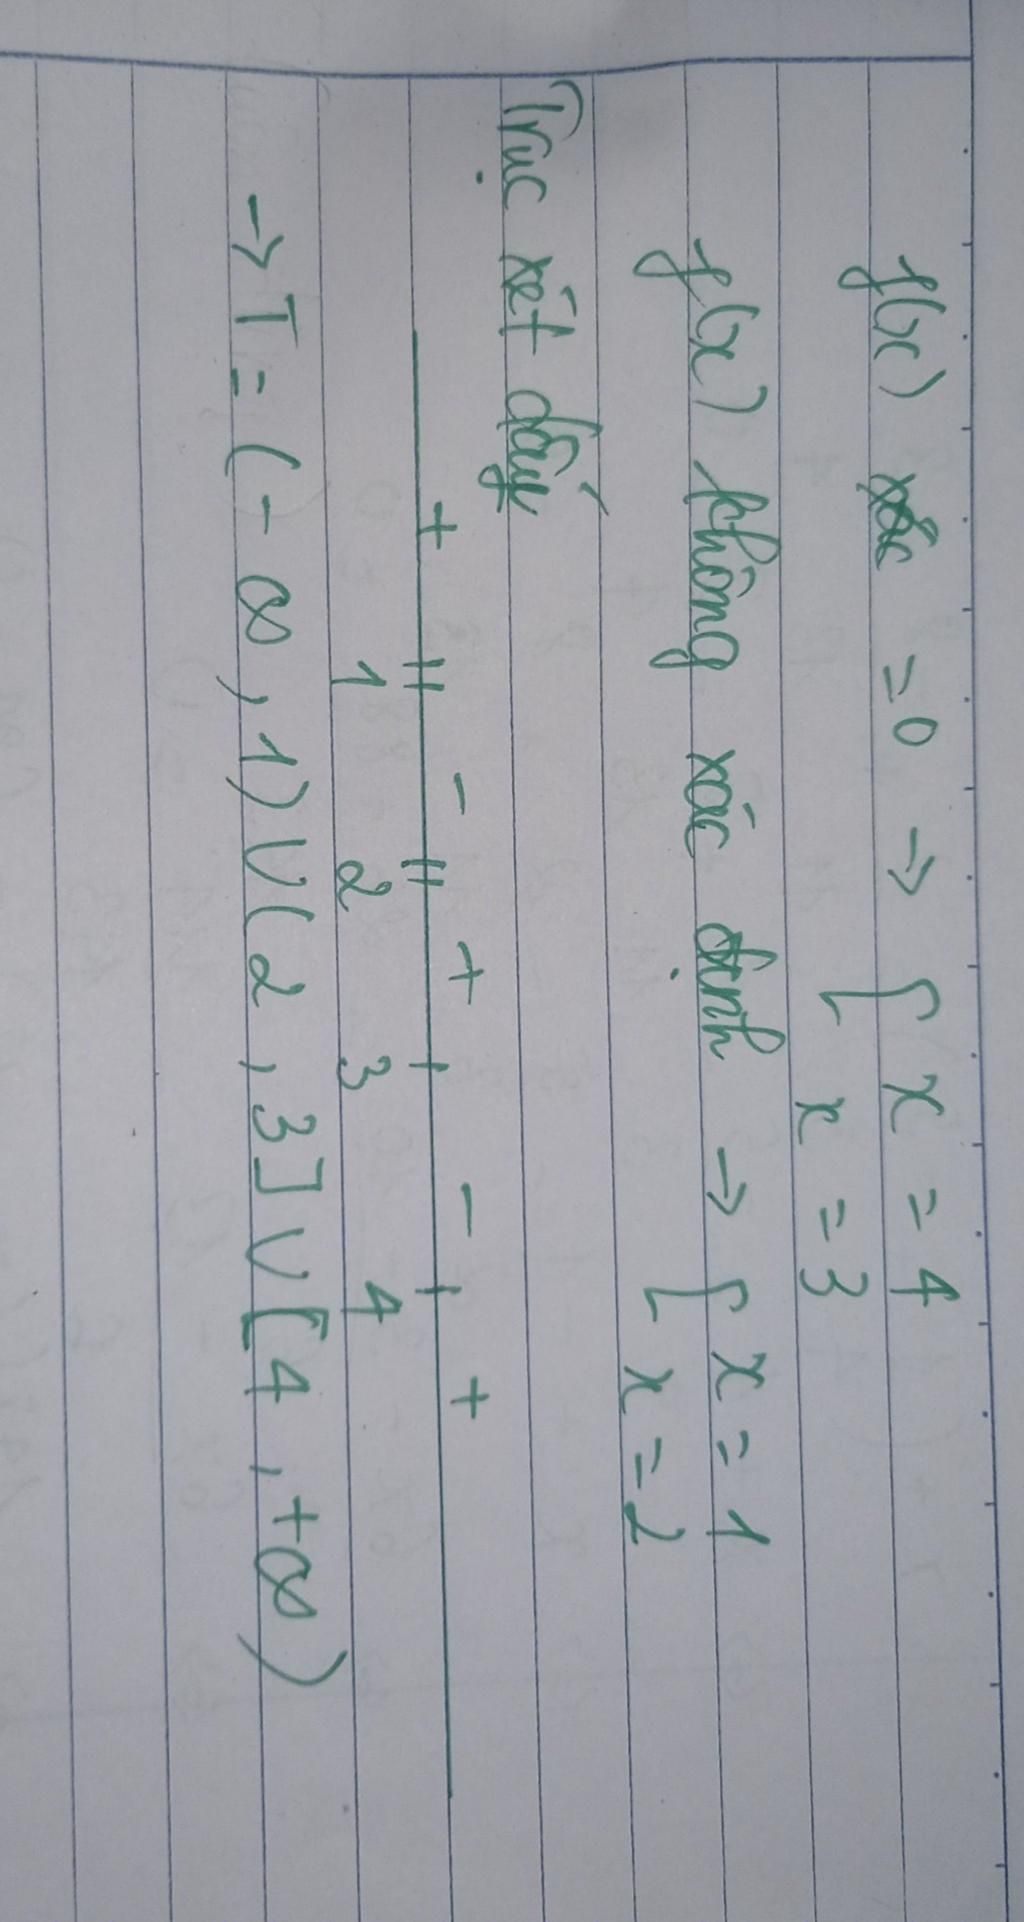 f(x) = 0 → [ x = 4
x = 3
f(x) không xác định → [ x = 1
x = 2
Trục xét dấy
+ || - || + | - | +
1 2 3 4
→ T = (- ∞ , 1) V (2 , 3] V [4 , +∞)